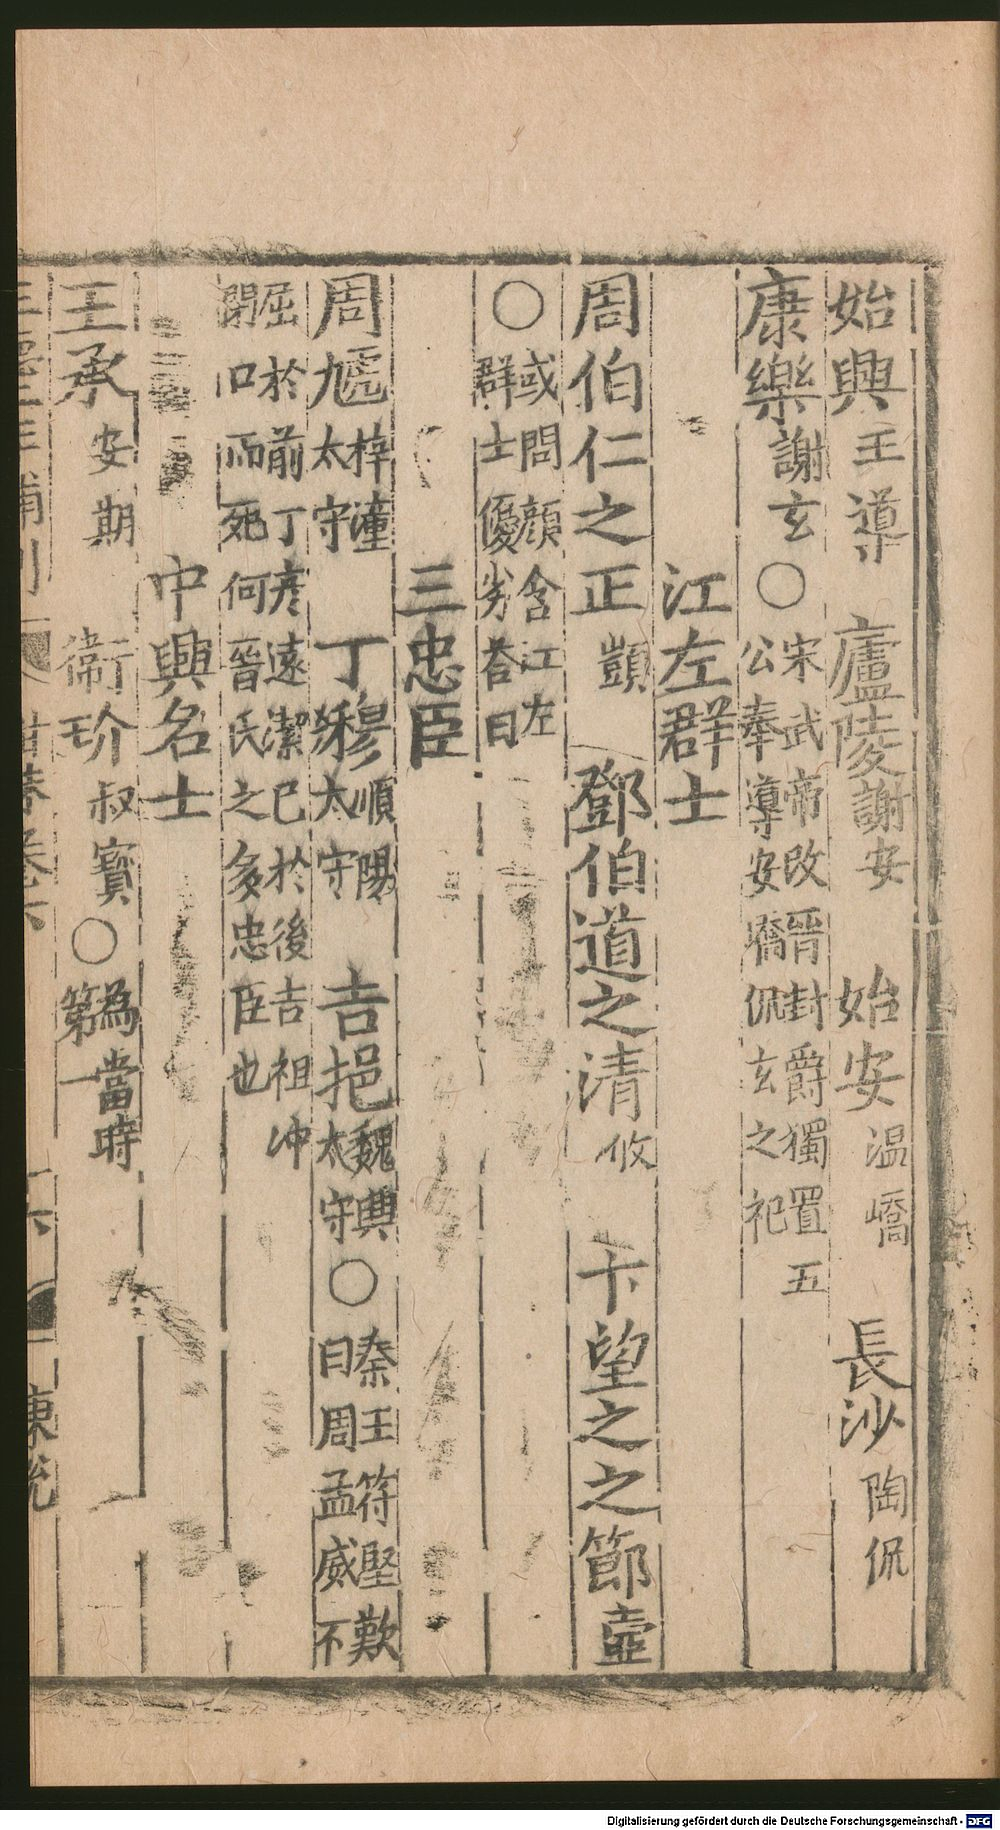 始興王導 廬陵謝安 始安温嶠 長沙陶侃
康樂謝玄〇宋武帝改晉封爵獨置五
公奉導安嶠侃玄之祀
江左群士
周伯仁之正顗 鄧伯道之清攸 卞望之之節壼
〇或問顔含江左
群士優劣荅曰
三忠臣
周虓梓潼太守 丁穆順陽太守 吉挹魏興太守〇秦王符堅歎
曰周孟威不
屈於前丁彦遠潔己於後吉祖冲
閉口而死何晉氏之多忠臣也
中興名士
王承安期 衞玠叔寶〇為當時
第一
六